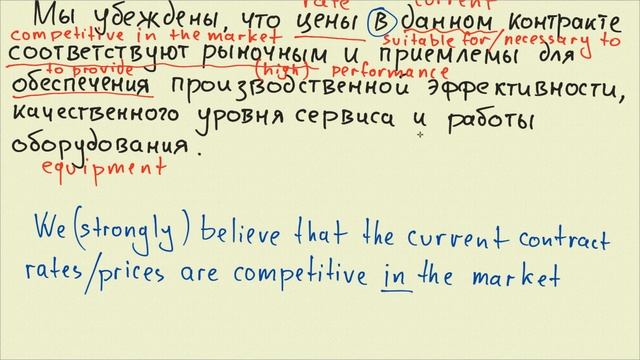 rate current
Мы убеждены, что цены в данном контракте
competitive in the market suitable for/necessary to
соответствуют рыночным и приемлемы для
to provide (high) performance
обеспечения производственной эффективности,
качественного уровня сервиса и работы
оборудования.
equipment
We (strongly) believe that the current contract
rates/prices are competitive in the market